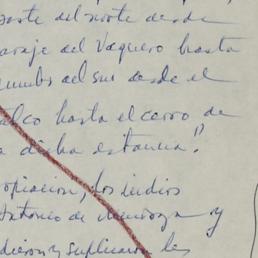 parte del norte desde
araje del Vaquero hasta
del sur desde el
alco hasta el cerro de
a dicha estancia."
opiacion, los indios
Antonio de Mendoza y
y suplicaron les